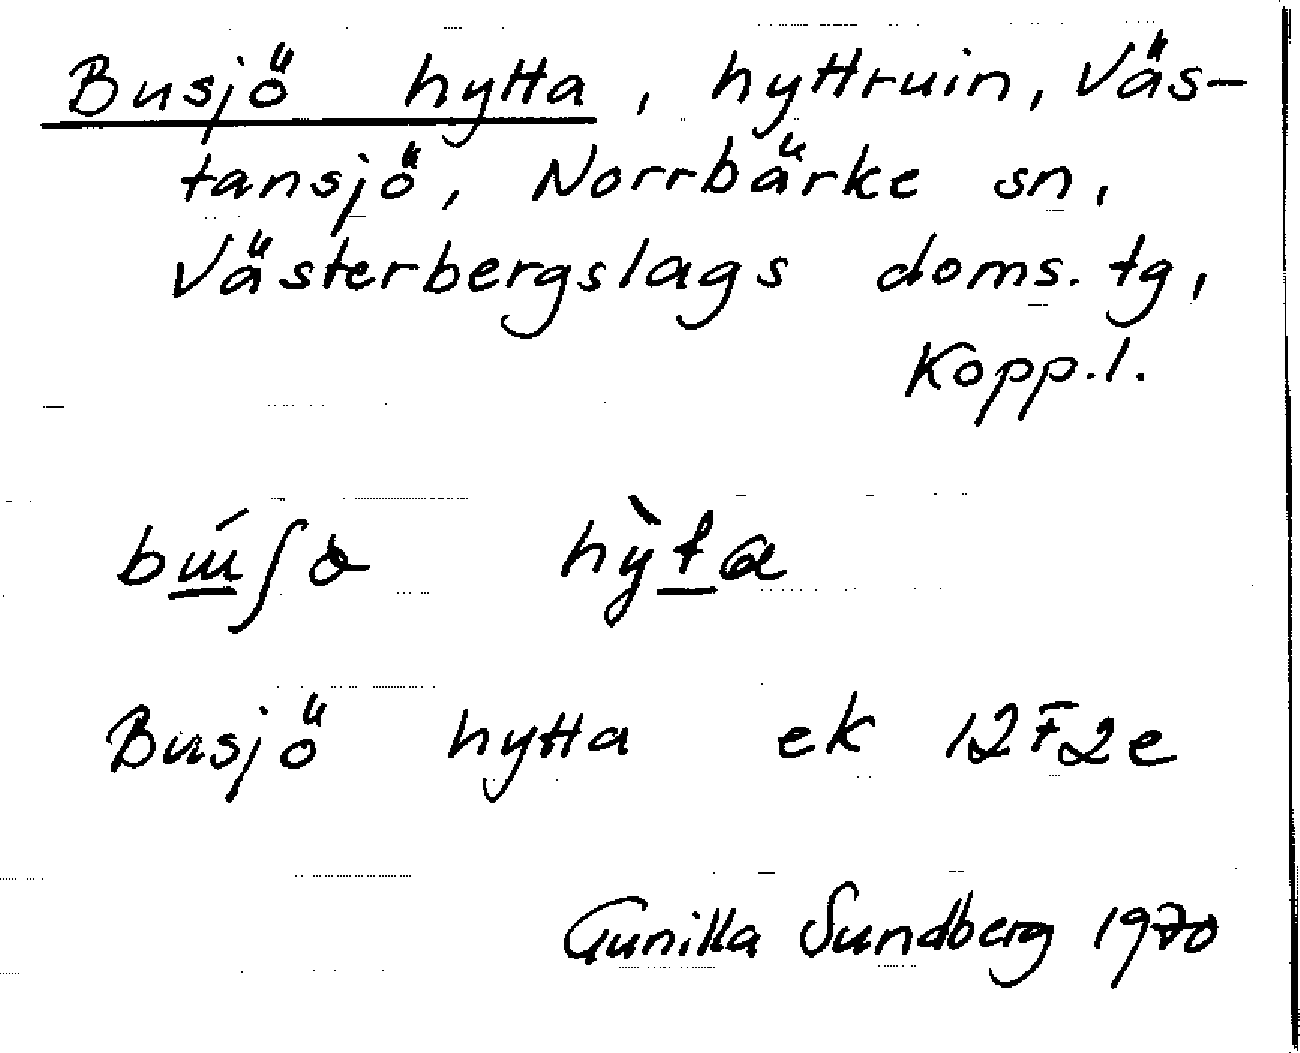 Busjö hytta, hyttruin, Väs-
tansjö, Norrbärke sn,
Västerbergslags doms. tg,
Kopp.l.
Busjö hytta ek 12F2e
Gunilla Sundberg 1970